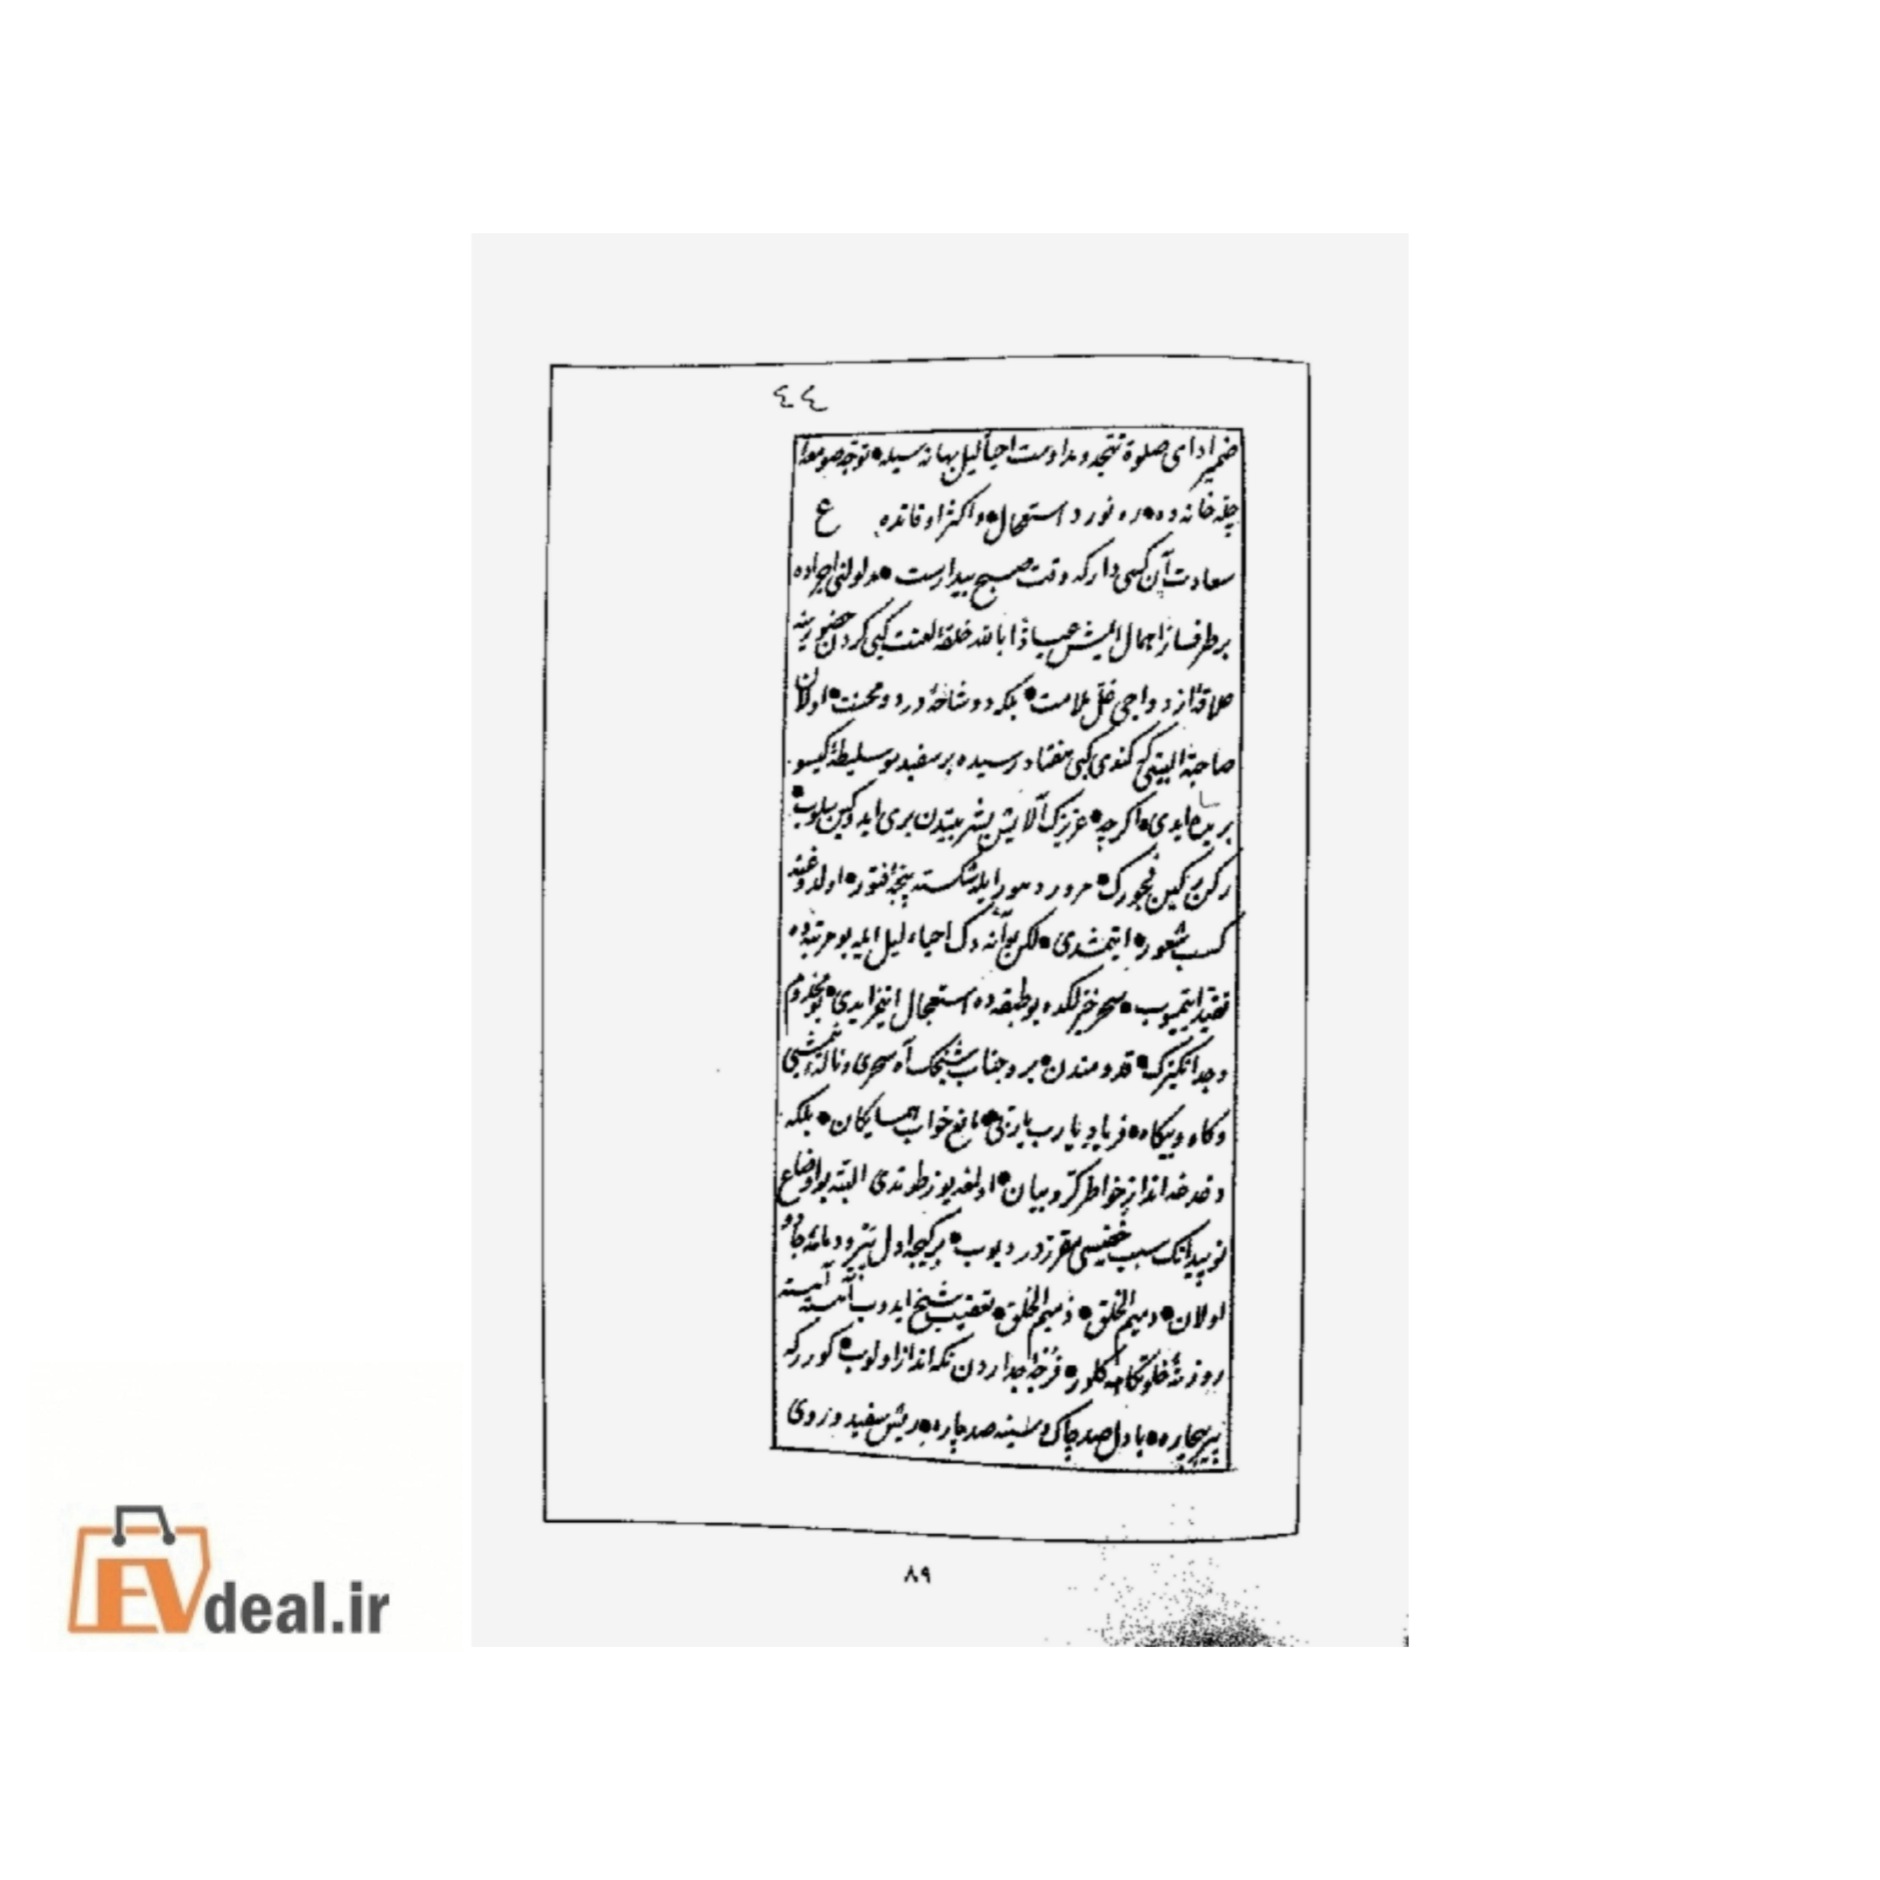 ٤٤
ضمیر ادای صلوة تهجد و مداومت احیأ لیل بهانه سیله توجه صومعه
چله خانه ده ره نورد استعجال و اکثر اوقاتده ع
سعادت آن کسی دارد که وقت صبح بیدارست مدلولنی اجراده
برطرفساز اهمال ایمش عیاذا بالله خلقه لعنت کبی کردن
علاقه ازدواجی غل ملامت بلکه دو شاخه درد و محنت اولان
صاحبة البیتی کندی کبی هفتاد رسیده بر سفید مو سلیطه کیسو
بریده ایدی اکرچه عزیزک آلایش بشریتدن بری
مرور دهور ایله شکسته پنجه فتور
کسب شعور ایتمشدی لکن احیاء لیل ایله بو مرتبه ده
تقید ایتمیوب سحرخیزلکده بو طبقه ده استعجال ایتمز ایدی
وجد انکیزک قدومندن برو جناب شیخک آه سحری و ناله
و کاه و بیکاه فریاد یا رب یا ربی مانع خواب همسایکان بلکه
دغدغه انداز خواطر کروبیان البته بو اوضاع
نو پیدانک سبب خفیسی مقرردر دیوب بر کیجه اول
اولان دمیم الخلق ذمیم الخلق تعقیب شیخ ایدوب آهسته آهسته
روزنه خلوتگاهه کلور فرجه جداردن نکه انداز اولوب کوررکه
پیر بیچاره با دل صد چاک و سینه صد پاره ریش سفید و روی
٨٩
EVdeal.ir